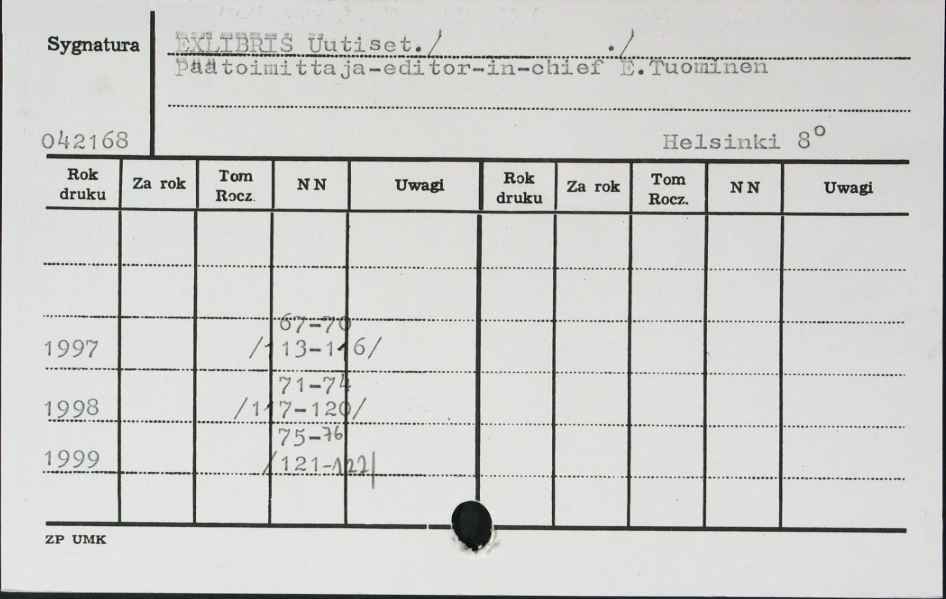 Sygnatura
EXLIBRIS Uutiset./ ./
Päätoimittaja-editor-in-chief E.Tuominen
042168 Helsinki 8°
Rok druku Za rok Tom Rocz. NN Uwagi Rok druku Za rok Tom Rocz. NN Uwagi
67-70
1997 /113-116/
71-74
1998 /117-120/
75-76
1999 /121-122/
ZP UMK